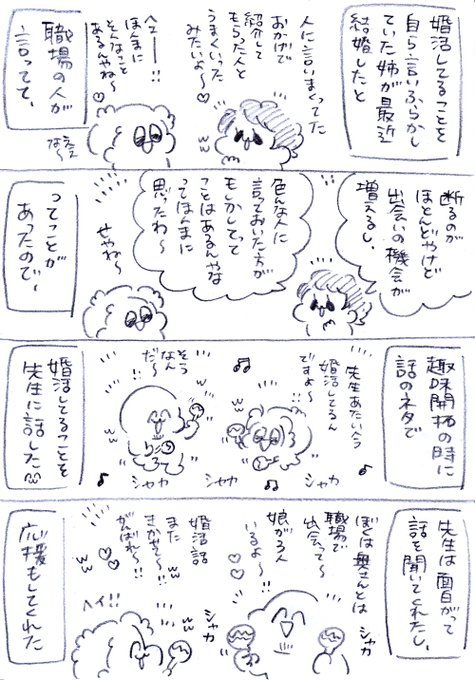 婚活してることを
自ら言いふらかし
ていた姉が最近
結婚したと
人に言いまくってた
おかげで
紹介して
もらった人と
うまくいった
みたいよ〜♡
へぇーー!!
ほんまに
そんなこと
あるんやね〜♡
職場の人が
言ってて、
断るのが
ほとんどやけど
出会いの機会が
増えるし、
色んな人に
言っておいた方が
もしかしてって
ことはあるんやな
ってほんまに
思ったわ〜
せやね〜
ってことが
あったので、
趣味開拓の時に
話のネタで
先生あたい今
婚活してるん
ですよ〜
シャカ
シャカ
そう
なん
だ〜
シャカ
シャカ
婚活してることを
先生に話した
先生は面白がって
話を聞いてくれたし、
ぼくは奥さんとは
職場で
出会って〜
娘が3人
いるよ〜
シャカ
シャカ
婚活話
また
きかせて〜!!
がんばれ〜!!
ヘイ!!
応援もしてくれた